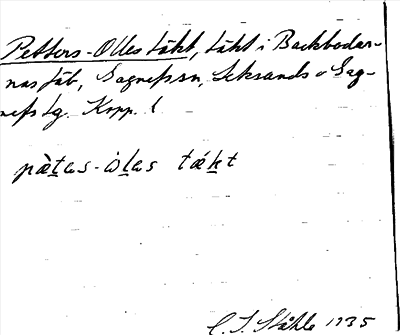 Petters-Olles täkt, täkt i Backbodar-
nas fäb, Sagnefssn, Leksands o Gag-
nefs tg. Kopp. l
pàtas-òlas tákt
C. I. Ståhle 1935